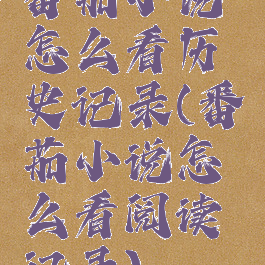 番茄小说
怎么看历
史记录(番
茄小说怎
么看阅读
记录)